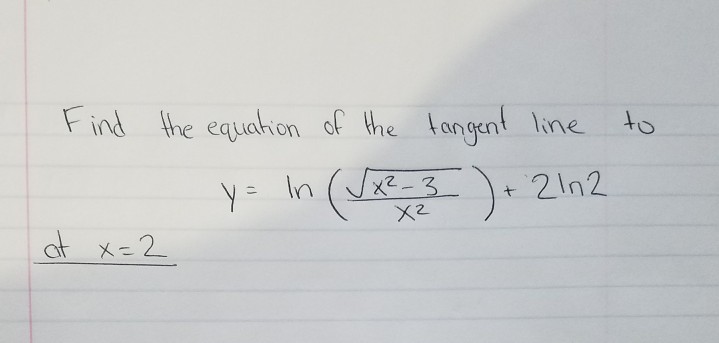 Find the equation of the tangent line to
y = ln (√x²-3 / x²) + 2ln2
at x=2